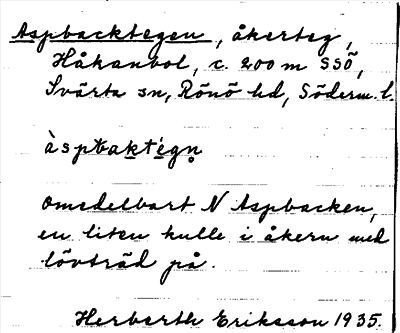 Aspbacktegen, åkerteg,
Håkanbol, c. 200 m SSÖ,
Svärta sn, Rönö hd, Söderm. l.
àspbaktégn
omedelbart N Aspbacken,
en liten kulle i åkern med
lövträd på.
Herberth Eriksson 1935.